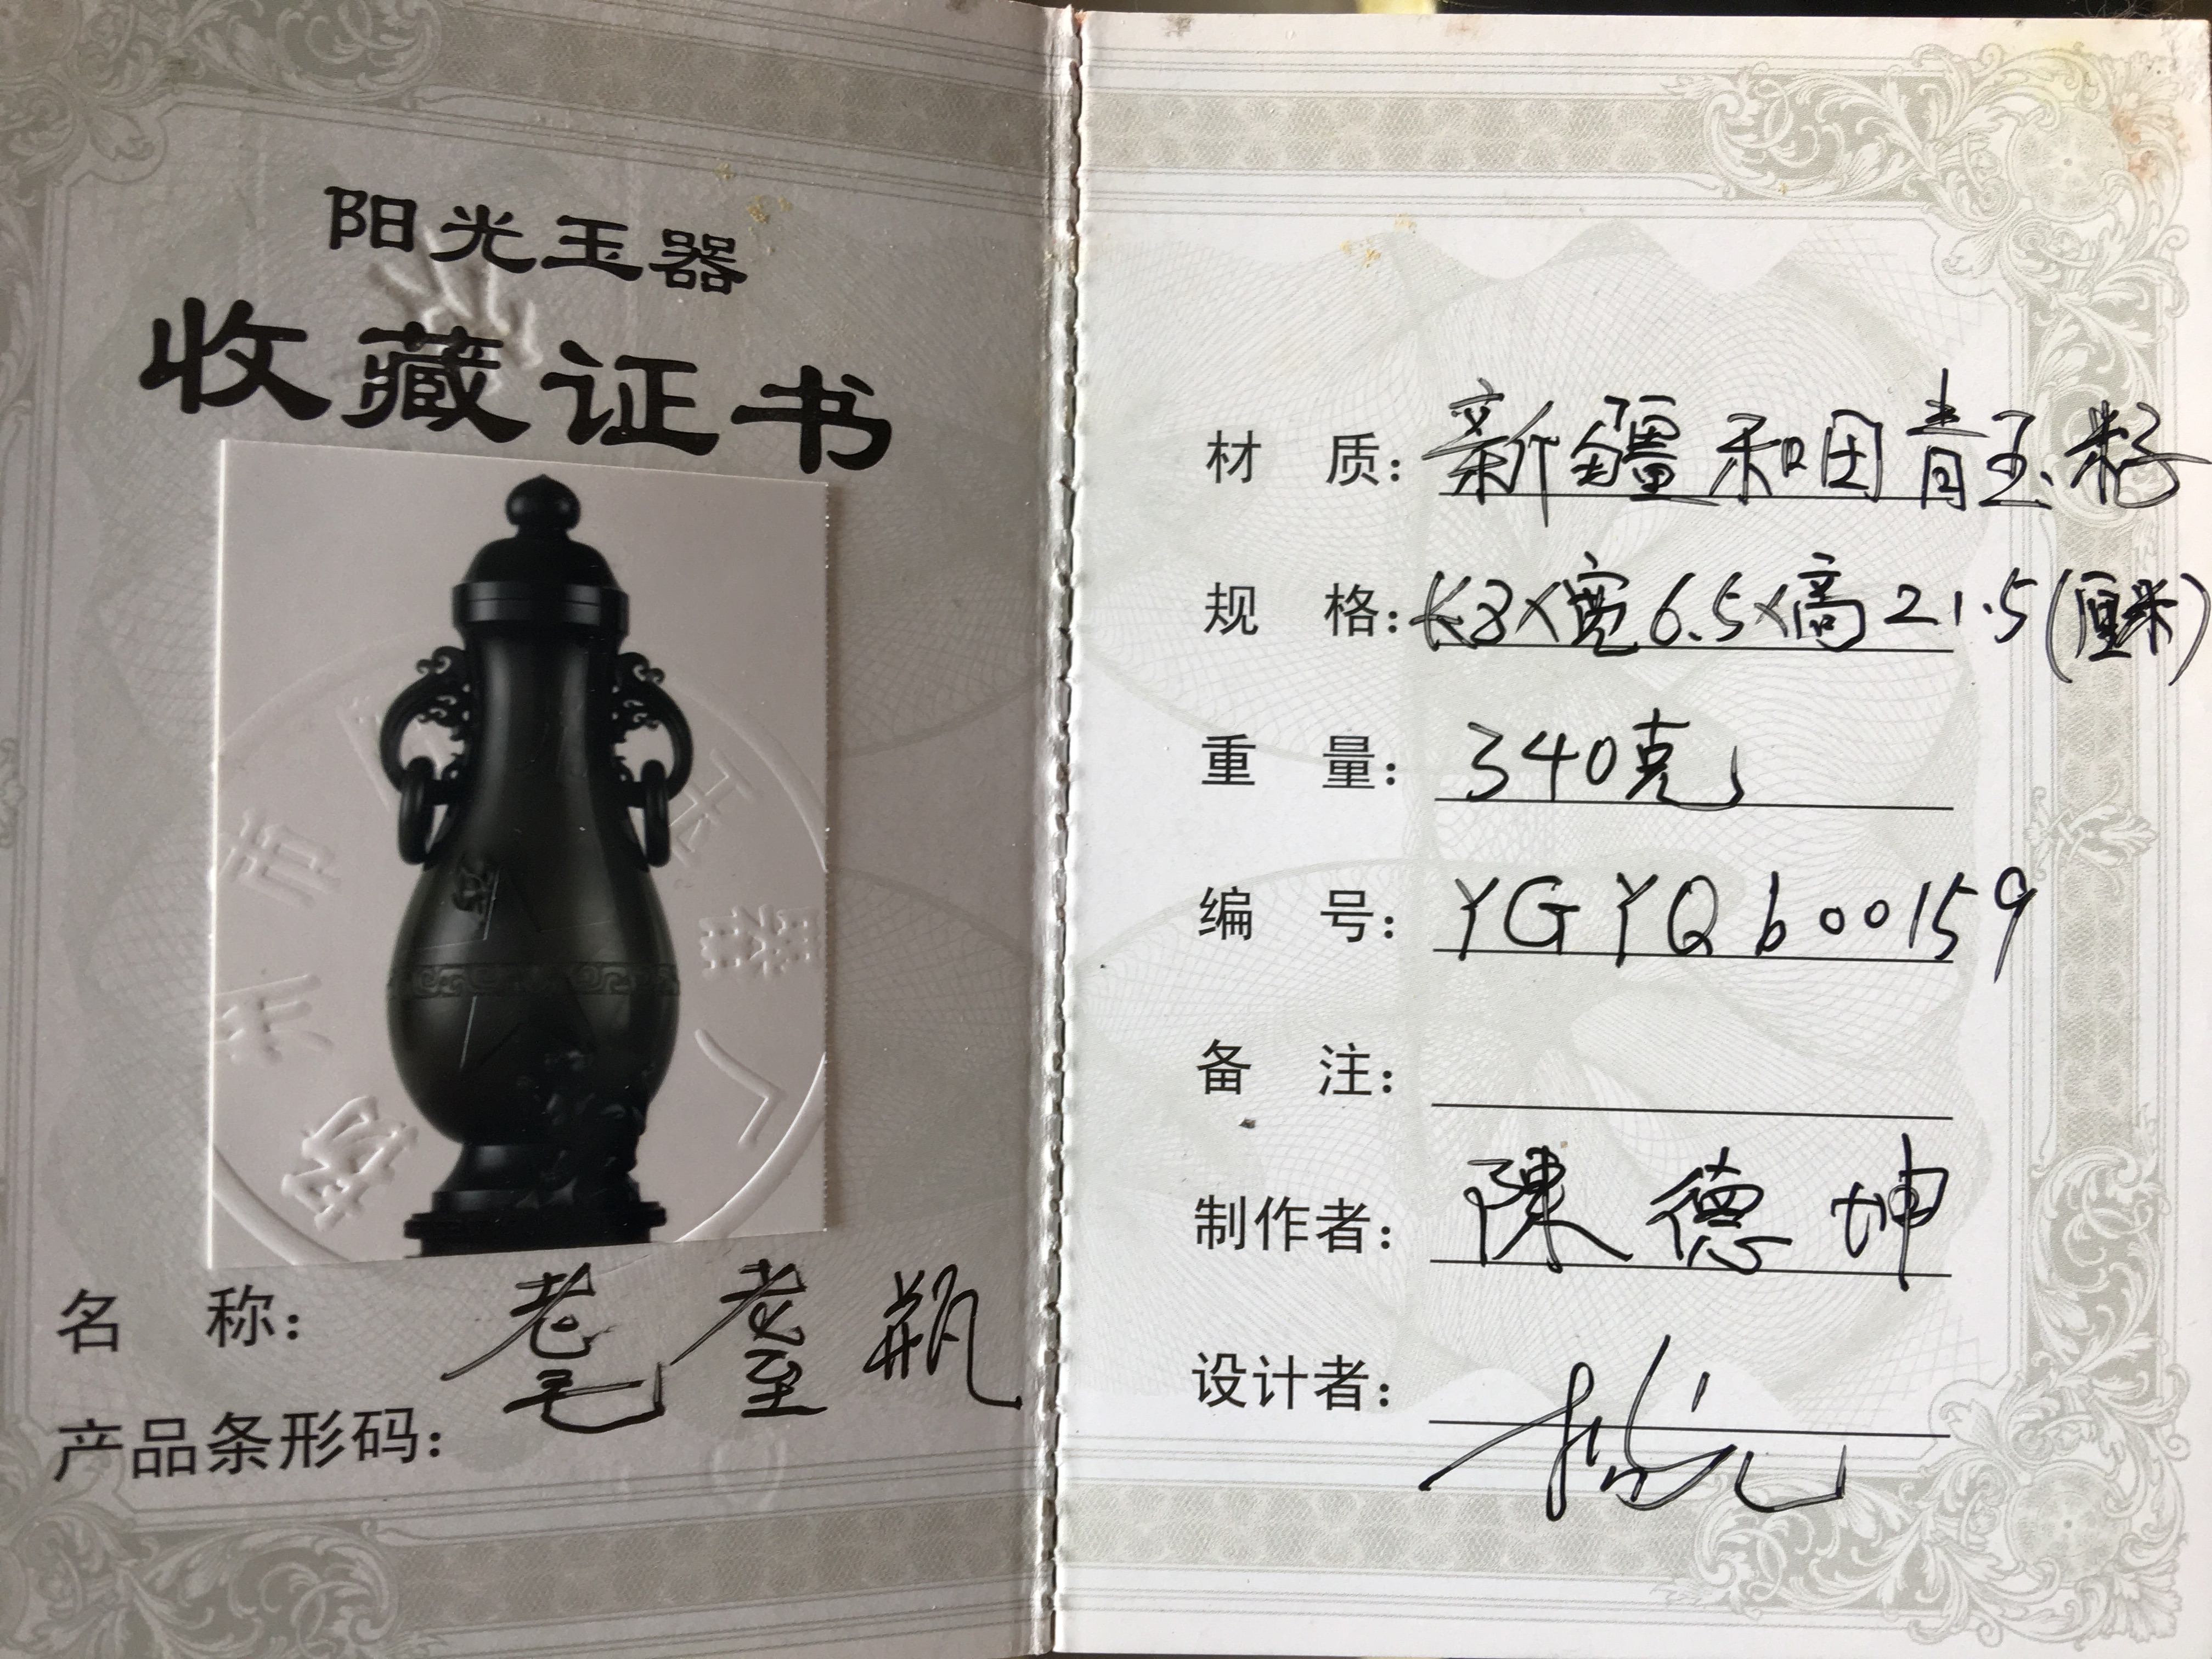 阳光玉器
收藏证书
名 称：耄耋瓶
产品条形码：
材 质：新疆和田青玉籽
规 格：长8×宽6.5×高21.5(厘米)
重 量：340克
编 号：YGYQb00159
备 注：
制作者：陳德坤
设计者：
扬 州 市 玉 器 厂